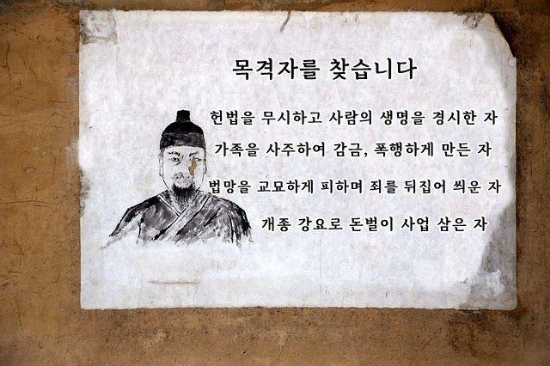 목격자를 찾습니다
헌법을 무시하고 사람의 생명을 경시한 자
가족을 사주하여 감금, 폭행하게 만든 자
법망을 교묘하게 피하며 죄를 뒤집어 씌운 자
개종 강요로 돈벌이 사업 삼은 자